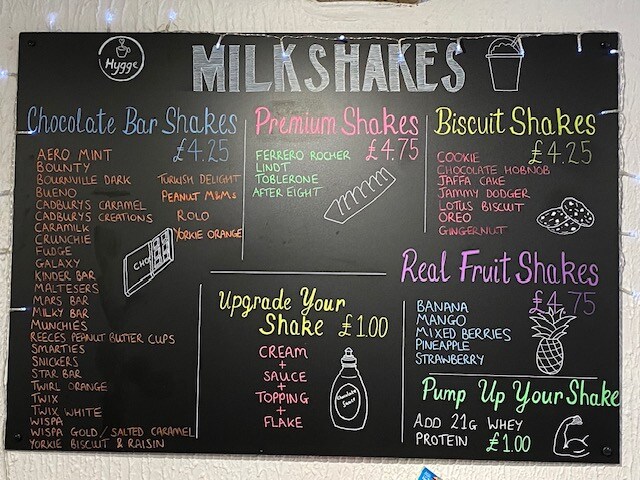 Hygge
MILKSHAKES
Chocolate Bar Shakes
£4.25
AERO MINT
BOUNTY
BOURNVILLE DARK
BUENO
CADBURYS CARAMEL
CADBURYS CREATIONS
CARAMILK
CRUNCHIE
FUDGE
GALAXY
KINDER BAR
MALTESERS
MARS BAR
MILKY BAR
MUNCHIES
REECES PEANUT BUTTER CUPS
SMARTIES
SNICKERS
STAR BAR
TWIRL ORANGE
TWIX
TWIX WHITE
WISPA
WISPA GOLD / SALTED CARAMEL
YORKIE BISCUIT & RAISIN
TURKISH DELIGHT
PEANUT M&Ms
ROLO
YORKIE ORANGE
CHOC
Premium Shakes
£4.75
FERRERO ROCHER
LINDT
TOBLERONE
AFTER EIGHT
Biscuit Shakes
£4.25
COOKIE
CHOCOLATE HOBNOB
JAFFA CAKE
JAMMY DODGER
LOTUS BISCUIT
OREO
GINGERNUT
Upgrade Your
Shake £1.00
CREAM
+
SAUCE
+
TOPPING
+
FLAKE
Chocolate
Sauce
Real Fruit Shakes
£4.75
BANANA
MANGO
MIXED BERRIES
PINEAPPLE
STRAWBERRY
Pump Up Your Shake
ADD 21g WHEY
PROTEIN £1.00